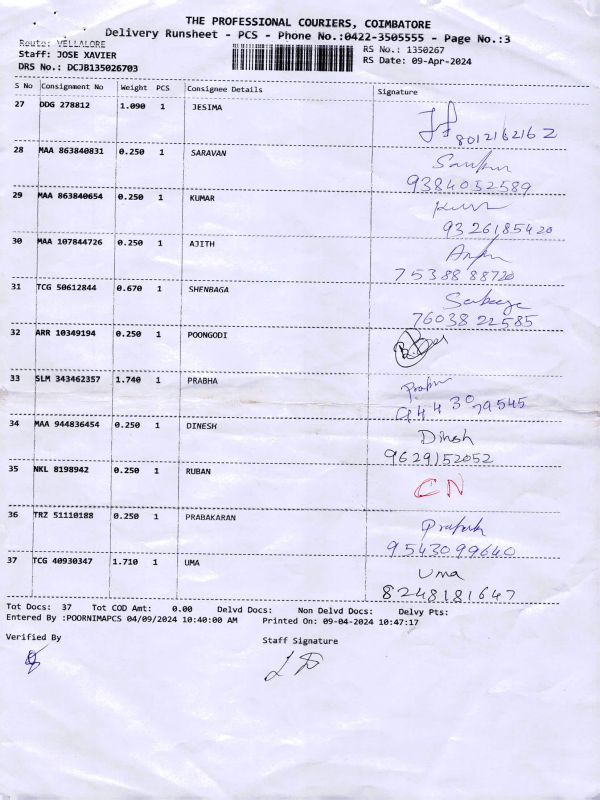 THE PROFESSIONAL COURIERS, COIMBATORE
Delivery Runsheet - PCS - Phone No.:0422-3505555 - Page No.:3
Route: VELLALORE
RS No.: 1350267
Staff: JOSE XAVIER
RS Date: 09-Apr-2024
DRS No.: DCJB135026703
S No Consignment No Weight PCS Consignee Details Signature
27 DDG 278812 1.090 1 JESIMA
8012162162
28 MAA 863840831 0.250 1 SARAVAN
9384032589
29 MAA 863840654 0.250 1 KUMAR
9326185420
30 MAA 107844726 0.250 1 AJITH
7538888720
31 TCG 50612844 0.670 1 SHENBAGA
7603822585
32 ARR 10349194 0.250 1 POONGODI
33 SLM 343462357 1.740 1 PRABHA
9443079545
34 MAA 944836454 0.250 1 DINESH Dinesh
9629152052
35 NKL 8198942 0.250 1 RUBAN CN
36 TRZ 51110188 0.250 1 PRABAKARAN
9543099640
37 TCG 40930347 1.710 1 UMA Uma
8248181647
Tot Docs: 37 Tot COD Amt: 0.00 Delvd Docs: Non Delvd Docs: Delvy Pts:
Entered By :POORNIMAPCS 04/09/2024 10:40:00 AM Printed On: 09-04-2024 10:47:17
Verified By Staff Signature